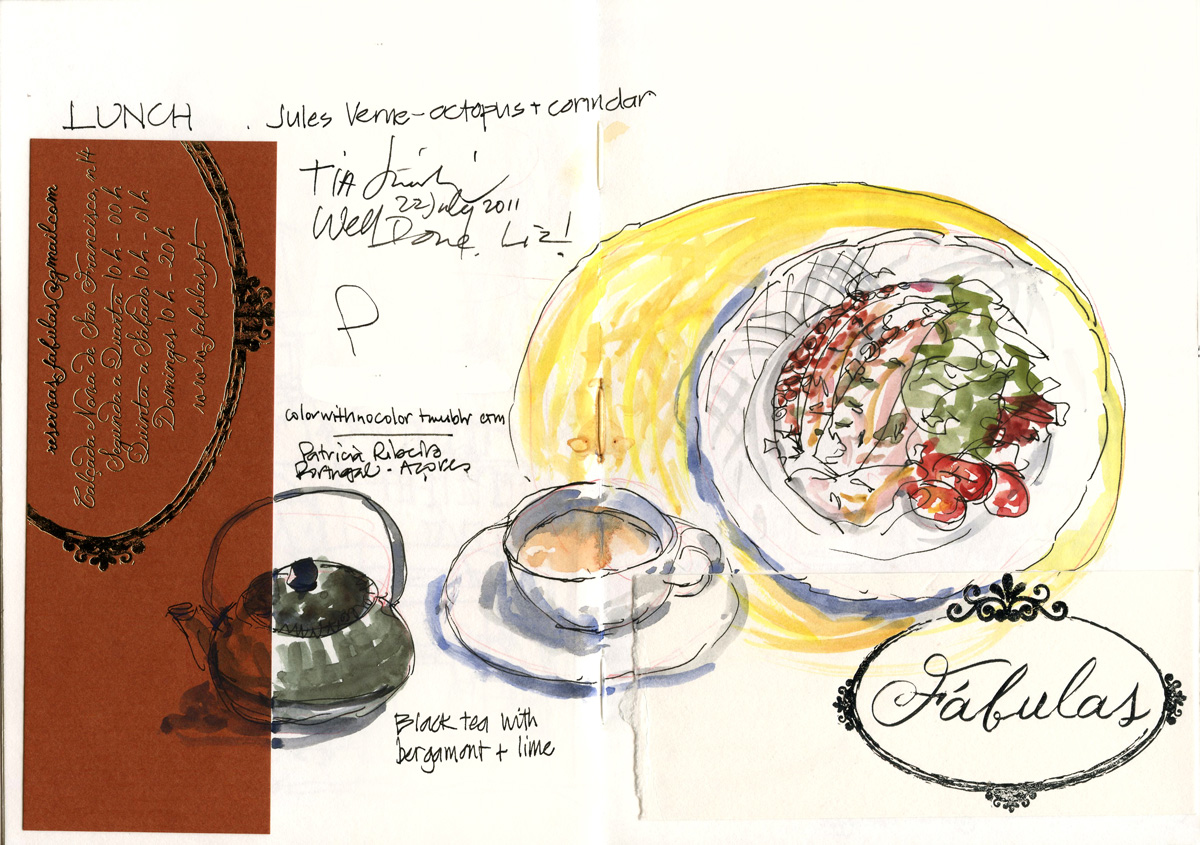 LUNCH . Jules Verne - octopus + corindar
Tia
22 July 2011
Well Done, Liz!
P
colorwithnocolor tmublr com
Patricia Ribeiro
Portugal - Açores
reservas.fabulas@gmail.com
Calçada Nova de São Francisco, n14
Segunda a Quarta 10h - 00h
Quinta a Sábado 10h - 01h
Domingos 10h - 20h
www.fabulas.pt
Black tea with
bergamont + lime
Fábulas